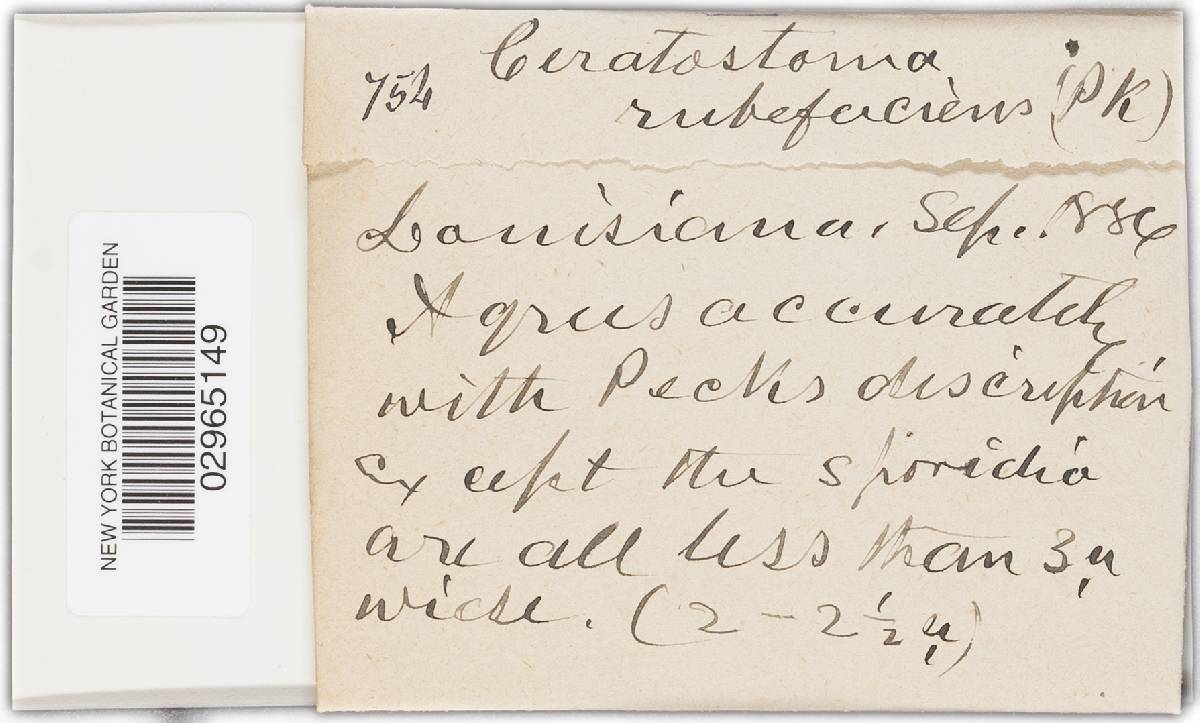 NEW YORK BOTANICAL GARDEN
02965149
754 Ceratostoma
rubefaciens (PK)
Louisiana, Sep. 1886
Agrees accurately
with Pecks discription
except the sporidia
are all less than 3µ
wide. (2 - 2 1/2 µ)